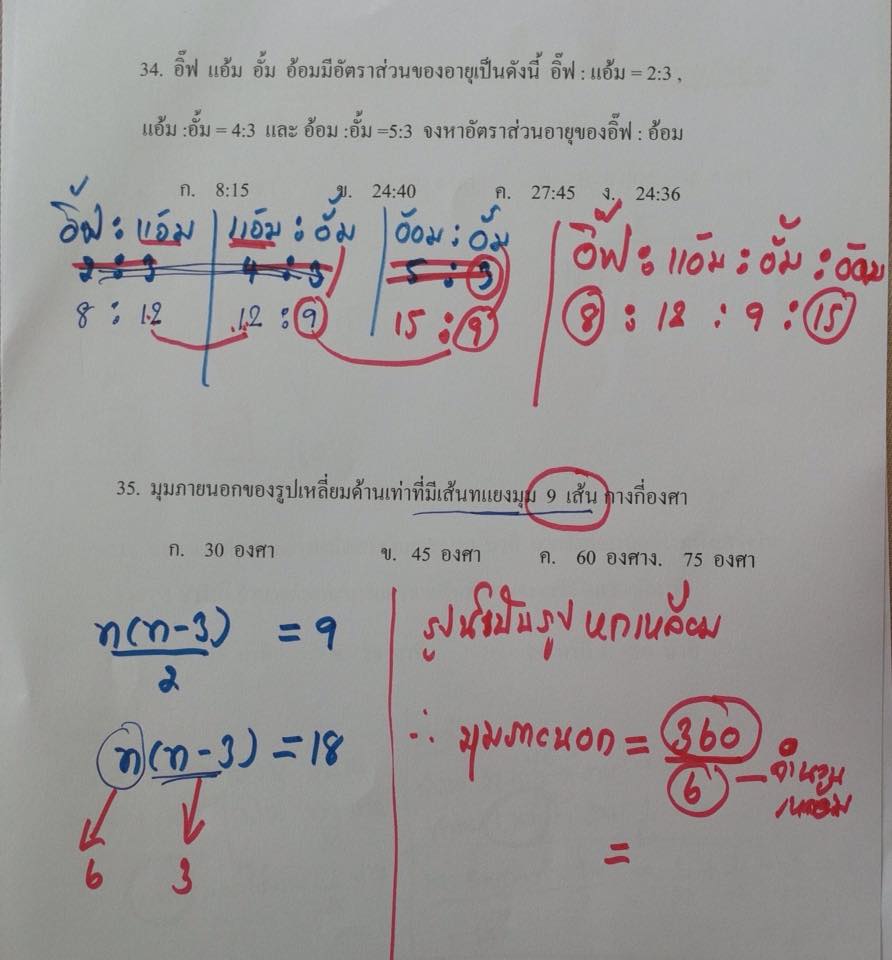 34. อิ๊ฟ แอ้ม อั้ม อ้อมมีอัตราส่วนของอายุเป็นดังนี้ อิ๊ฟ : แอ้ม = 2:3 ,
แอ้ม :อั้ม = 4:3 และ อ้อม :อั้ม =5:3 จงหาอัตราส่วนอายุของอิ๊ฟ : อ้อม
ก. 8:15 ข. 24:40 ค. 27:45 ง. 24:36
อิ๊ฟ : แอ้ม แอ้ม : อั้ม อ้อม : อั้ม
2 : 3 4 : 3 5 : 3
8 : 12 12 : 9 15 : 9
อิ๊ฟ : แอ้ม : อั้ม : อ้อม
8 : 12 : 9 : 15
35. มุมภายนอกของรูปเหลี่ยมด้านเท่าที่มีเส้นทแยงมุม 9 เส้น กางกี่องศา
ก. 30 องศา ข. 45 องศา ค. 60 องศาง. 75 องศา
n(n-3) = 9
2
n(n-3) = 18
6 3
รูปนี้เป็นรูป หกเหลี่ยม
∴ มุมภายนอก = 360
6 — จำนวน
เหลี่ยม
=